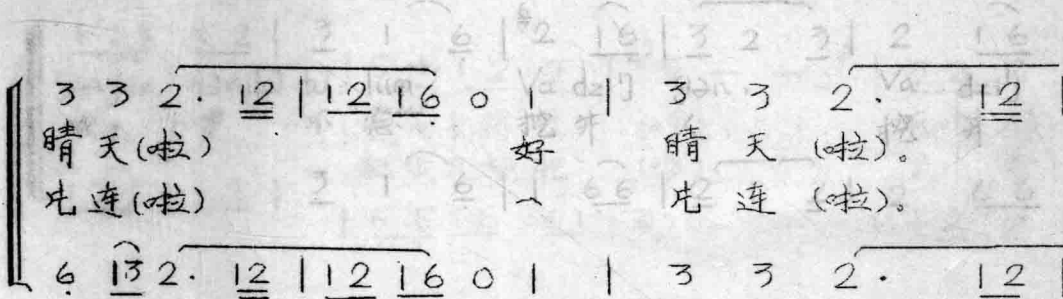 3 3 2· 12 | 12 16 0 1 | 3 3 2· 12
晴天(啦) 好 晴天(啦)。
连(啦) 连(啦)。
6 13 2· 12 | 12 16 0 1 | 3 3 2· 12 |